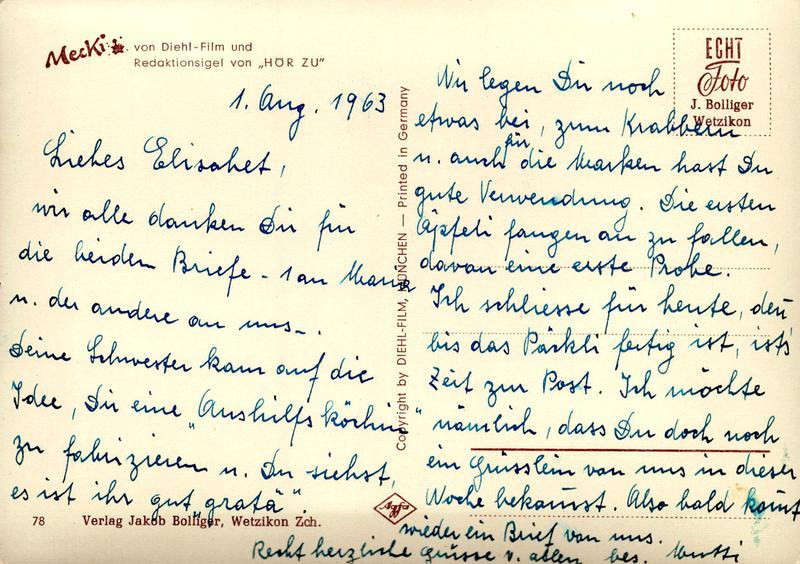 Mecki von Diehl-Film und
Redaktionsigel von „HÖR ZU"
1. Aug. 1963
Liebes Elisabet,
wir alle danken Dir für
die beiden Briefe - 1 an Mama
u. der andere an uns -.
Deine Schwester kam auf die
Idee, Dir eine „Aushilfsköchin"
zu fabrizieren u. Du siehst,
es ist ihr gut „gratä".
78 Verlag Jakob Bolliger, Wetzikon Zch.
Copyright by DIEHL-FILM, MÜNCHEN — Printed in Germany
Agfa
ECHT
Foto
J. Bolliger
Wetzikon
Wir legen Dir noch
etwas bei, zum Krabbern
u. auch für die Marken hast Du
gute Verwendung. Die ersten
Äpfeli fangen an zu fallen,
davon eine erste Probe.
Ich schliesse für heute, den
bis das Päckli fertig ist, ists
Zeit zur Post. Ich möchte
nämlich, dass Du doch noch
ein Grüsslein von uns in dieser
Woche bekommst. Also bald kommt
wieder ein Brief von uns.
Recht herzliche Grüsse v. allen bes. Mutti